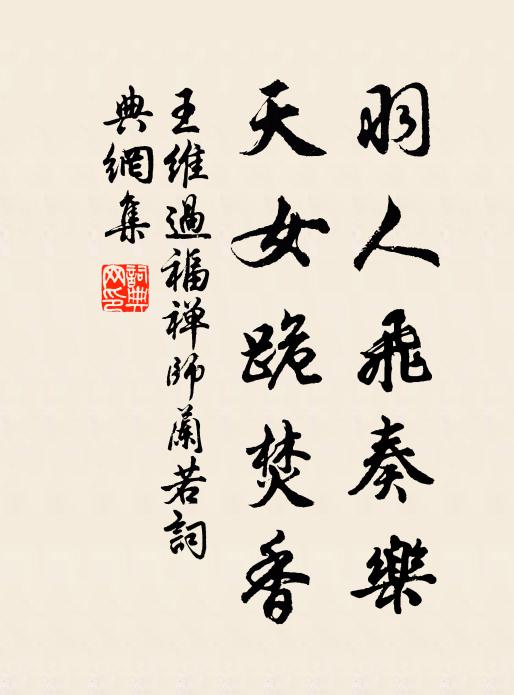 羽人飛奏樂
天女跪焚香
王維過福禅師蘭若詞
典網集
詞典
网印